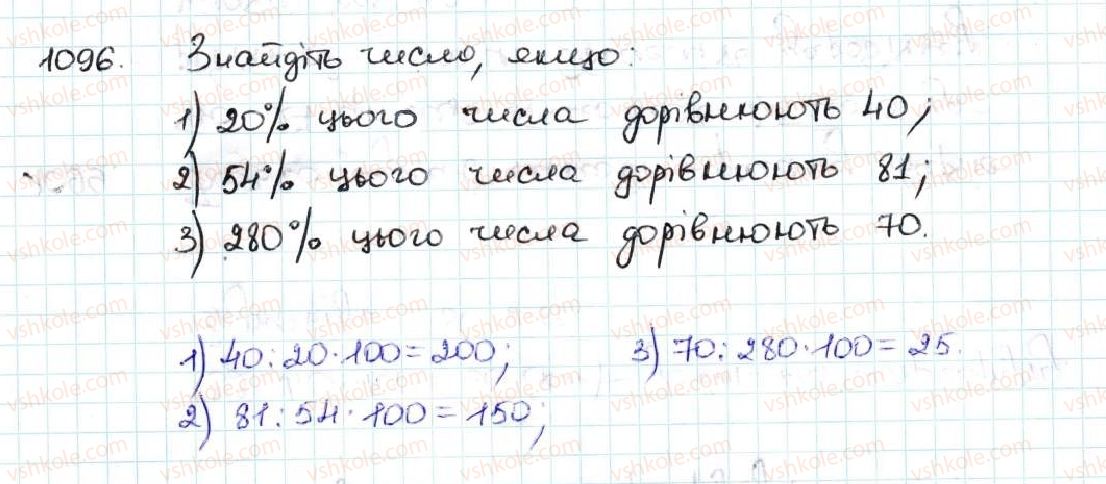 1096. Знайдіть число, якщо:
1) 20% цього числа дорівнюють 40;
2) 54% цього числа дорівнюють 81;
3) 280% цього числа дорівнюють 70.
1) 40:20·100=200; 3) 70:280·100=25.
2) 81:54·100=150;